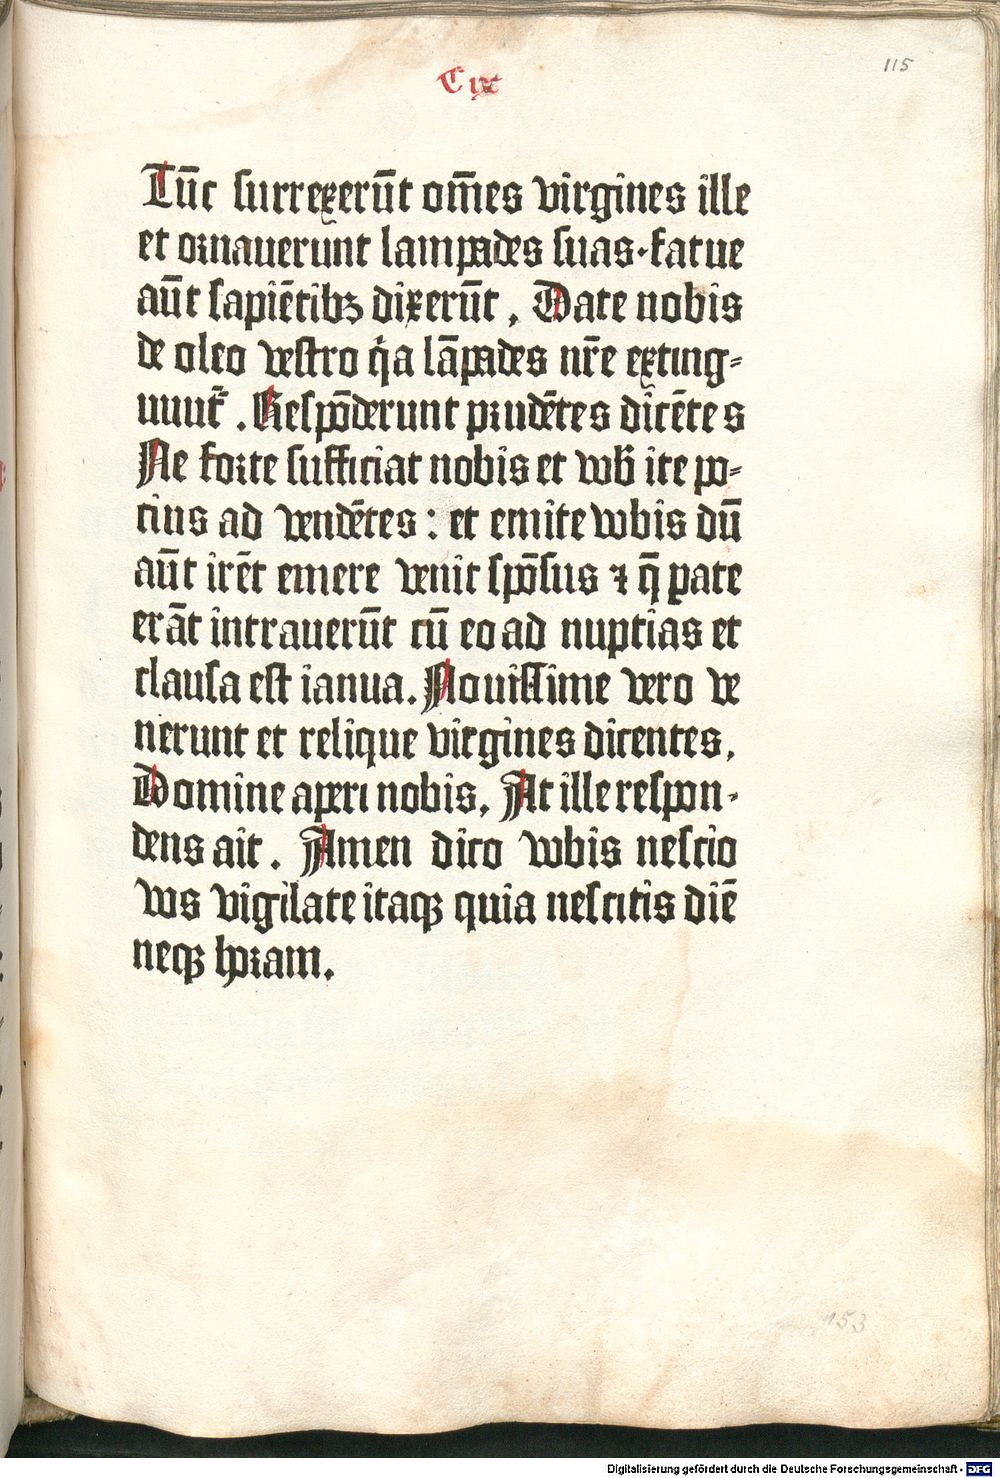 C ix
115
Tūc surrexerūt om̄es virgines ille
et ornauerunt lampades suas·fatue
aūt sapiētibꝫ dixerūt . Date nobis
de oleo vestro q̇a lāpades nr̄e exting⸗
uuut᷑ . Respōderunt prudētes dicētes
Ne forte sufficiat nobis et vob̄ ite po⸗
cius ad vendētes : et emite vobis dū
aūt irēt emere venit spōsus ⁊ q̄ pate
erāt intrauerūt cū eo ad nuptias et
clausa est ianua. Nouissime vero ve
nerunt et relique virgines dicentes.
Domine aperi nobis. At ille respon⸗
dens ait . Amen dico vobis nescio
vos vigilate itaqꝫ quia nescitis diē
neqꝫ horam.
153
Digitalisierung gefördert durch die Deutsche Forschungsgemeinschaft - DFG